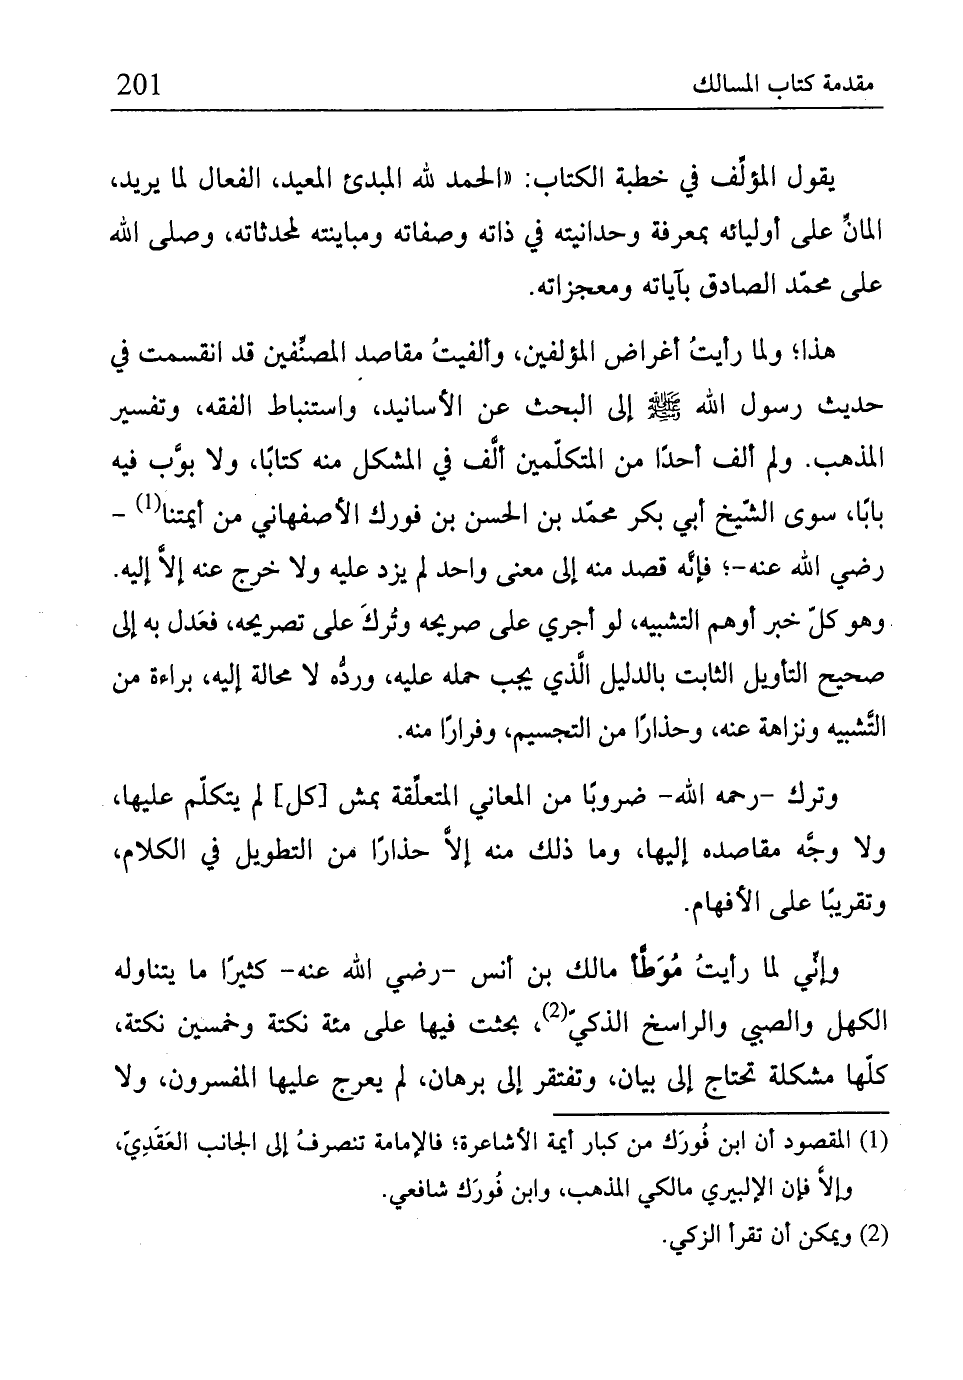 مقدمة كتاب المسالك 201
يقول المؤلِّف في خطبة الكتاب: «الحمد لله المبدئ المعيد، الفعال لما يريد،
المانِّ على أوليائه بمعرفة وحدانيته في ذاته وصفاته ومباينته لمحدثاته، وصلى الله
على محمّد الصادق بآياته ومعجزاته.
هذا؛ ولما رأيتُ أغراض المؤلفين، وألفيتُ مقاصد المصنِّفين قد انقسمت في
حديث رسول الله ﷺ إلى البحث عن الأسانيد، واستنباط الفقه، وتفسير
المذهب. ولم ألف أحدًا من المتكلّمين ألَّف في المشكل منه كتابًا، ولا بوَّب فيه
بابًا، سوى الشّيخ أبي بكر محمّد بن الحسن بن فورك الأصفهاني من أيمتنا(1) -
رضي الله عنه-؛ فإنَّه قصد منه إلى معنى واحد لم يزد عليه ولا خرج عنه إلاَّ إليه.
وهو كلّ خبر أوهم التشبيه، لو أجري على صريحه وتُركَ على تصريحه، فعَدل به إلى
صحيح التأويل الثابت بالدليل الَّذي يجب حمله عليه، وردُّه لا محالة إليه، براءة من
التَّشبيه ونزاهة عنه، وحذارًا من التجسيم، وفرارًا منه.
وترك -رحمه الله- ضروبًا من المعاني المتعلّقة بمش [كل] لم يتكلّم عليها،
ولا وجَّه مقاصده إليها، وما ذلك منه إلاَّ حذارًا من التطويل في الكلام،
وتقريبًا على الأفهام.
وإنّي لما رأيتُ مُوَطَّأ مالك بن أنس -رضي الله عنه- كثيرًا ما يتناوله
الكهل والصبي والراسخ الذكيّ(2)، بحثت فيها على مئة نكتة وخمسين نكتة،
كلّها مشكلة تحتاج إلى بيان، وتفتقر إلى برهان، لم يعرج عليها المفسرون، ولا
(1) المقصود أن ابن فُورَك من كبار أيمة الأشاعرة؛ فالإمامة تنصرفُ إلى الجانب العَقَدِيّ،
وإلاَّ فإن الإلبيري مالكي المذهب، وابن فُورَك شافعي.
(2) ويمكن أن تقرأ الزكي.